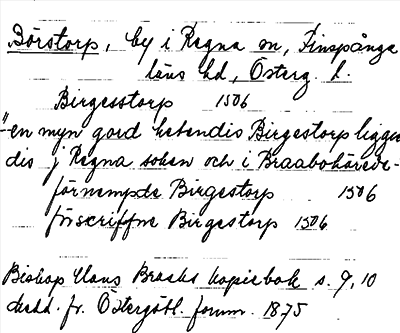 Börstorp, by i Regna sn, Finspånga
läns hd, Österg. l.
Birgesstorp 1506
"en myn gord hetendis Birgestorp liggen
dis j Regna soken och i Braabohärede-
förnempde Birgestorp 1506
förscriffne Birgestorp 1506
Biskop Hans Brasks kopiebok s. 9, 10
Medd. fr. Östergötl. fornm. 1875